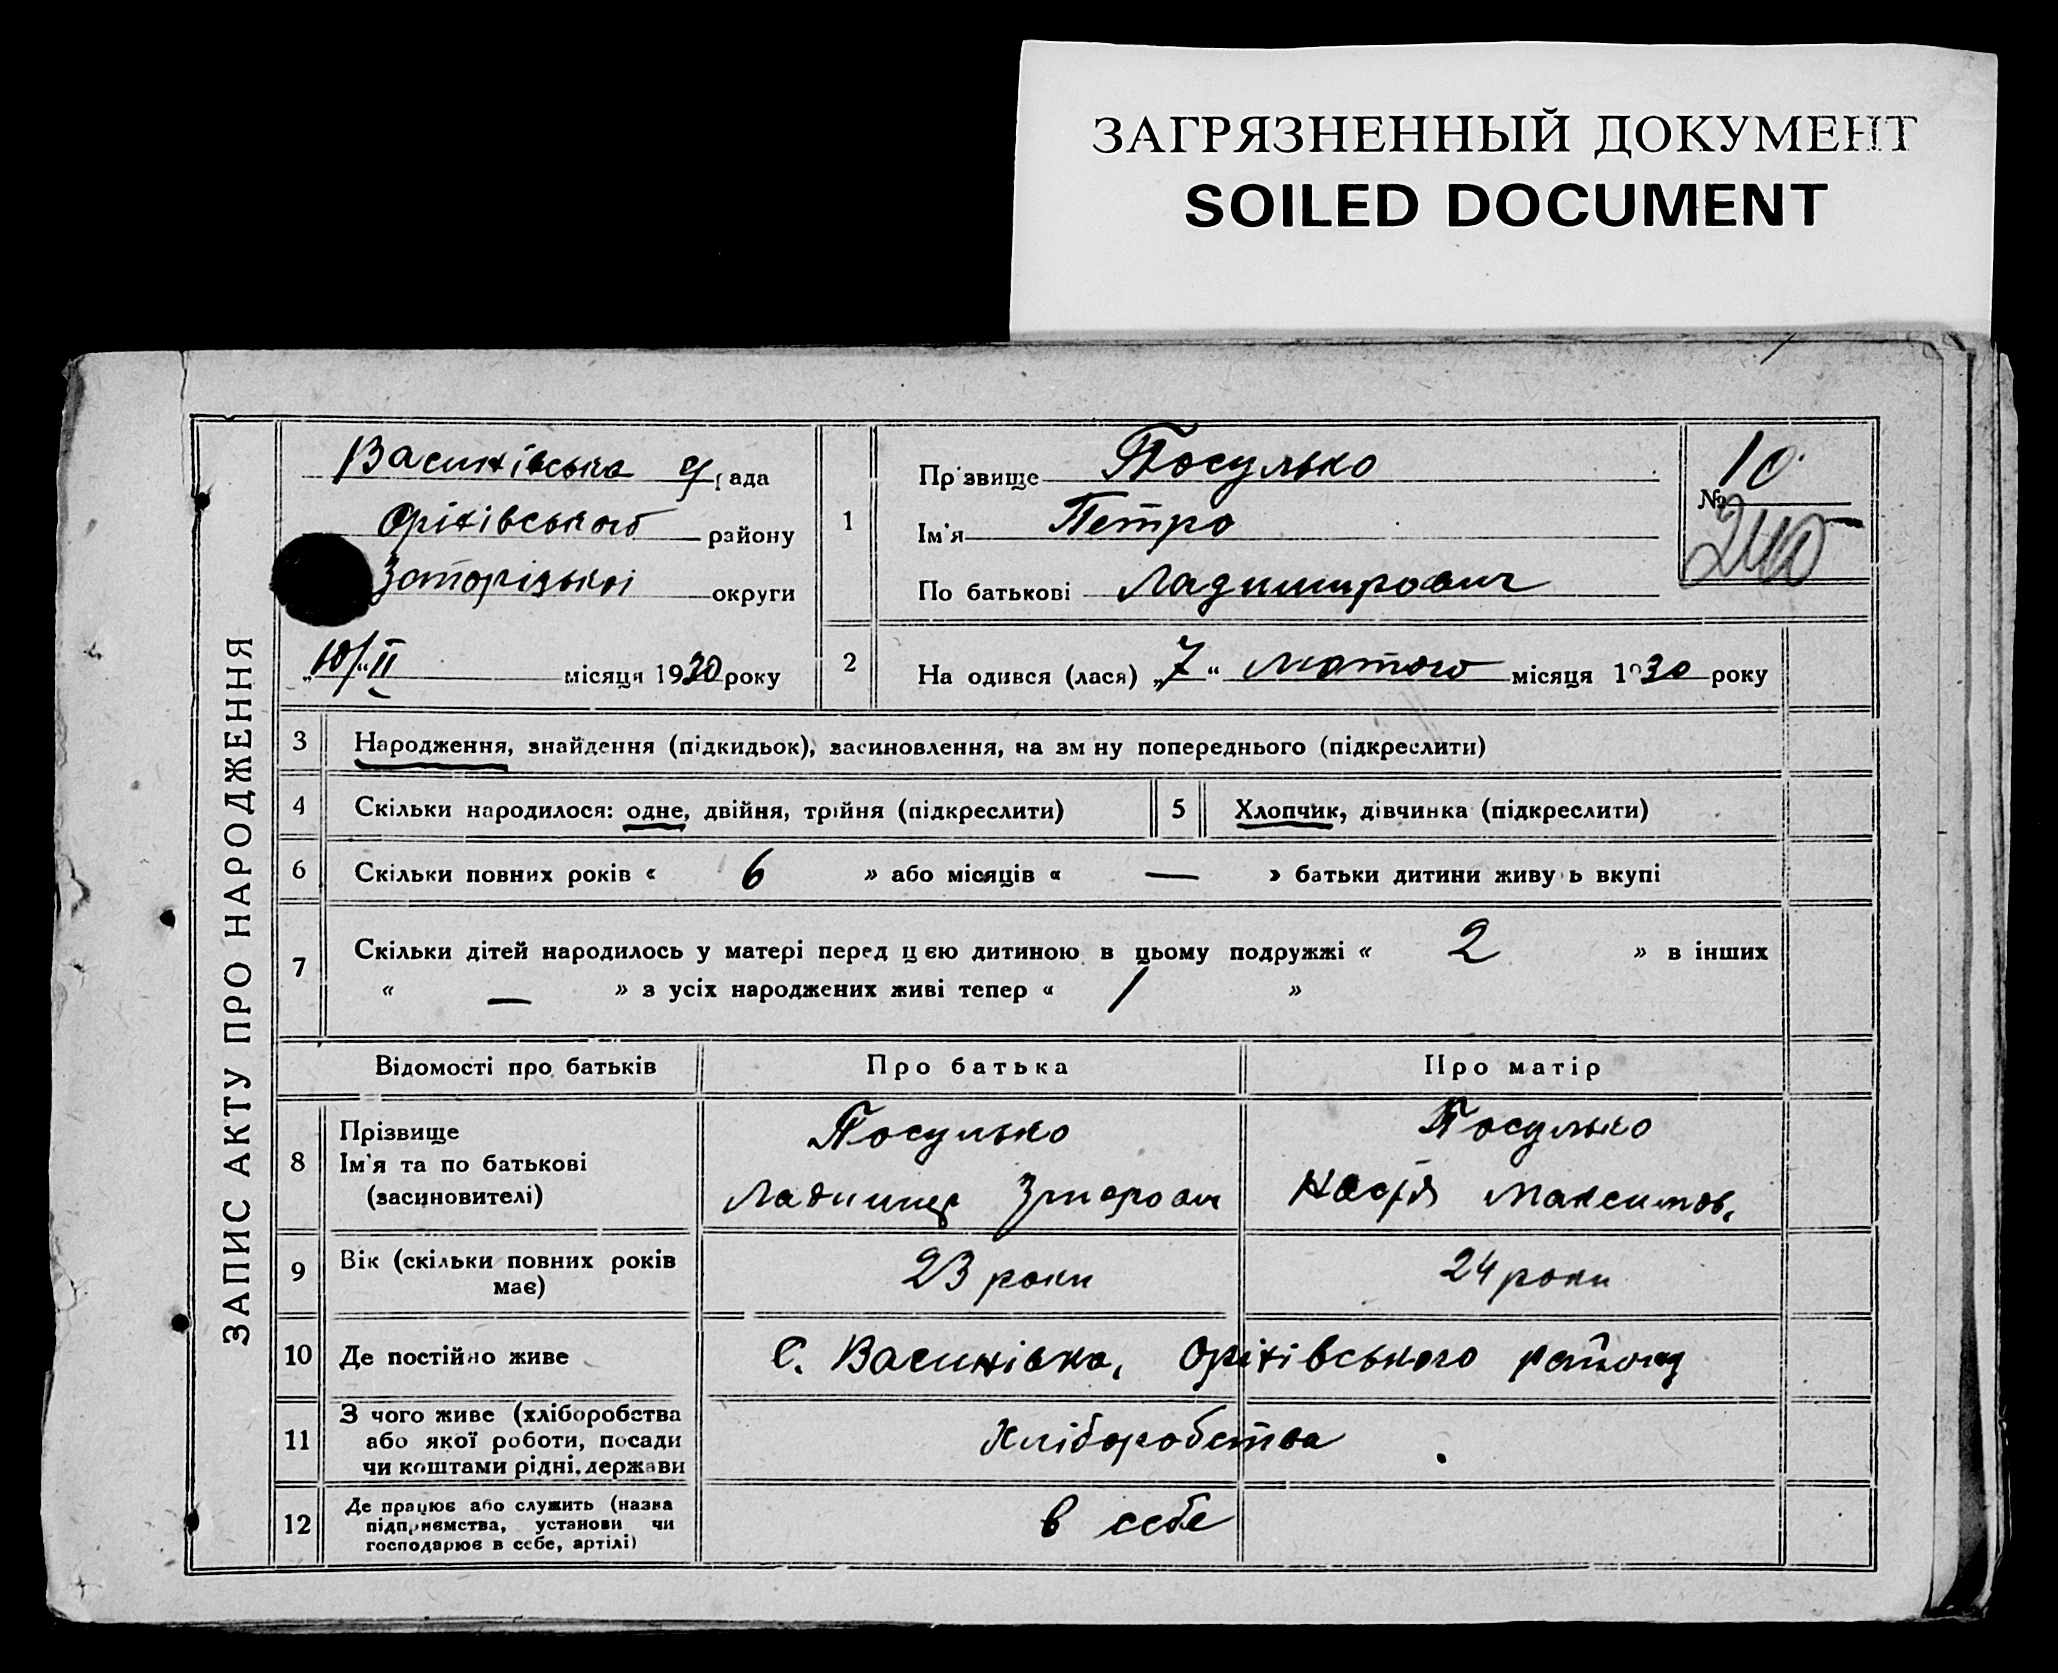 ЗАГРЯЗНЕННЫЙ ДОКУМЕНТ
SOILED DOCUMENT
ЗАПИС АКТУ ПРО НАРОДЖЕННЯ
Васинівська с/рада
Оріхівського району
Запорізької округи
„10/“ II місяця 1930 року
1
Пр звище Посулько
Ім'я Петро
По батькові Ладимирович
№ 10
240
2
На одився (лася) „7“ Лютого місяця 1930 року
3 Народження, знайдення (підкидьок), засиновлення, на зм ну попереднього (підкреслити)
4 Скільки народилося: одне, двійня, трійня (підкреслити) 5 Хлопчик, дівчинка (підкреслити)
6 Скільки повних років « 6 » або місяців « — » батьки дитини живу ь вкупі
7 Скільки дітей народилось у матері перед ц єю дитиною в цьому подружжі « 2 » в інших
« — » з усіх народжених живі тепер « 1 »
Відомості про батьків Про батька Про матір
8 Прізвище
Ім'я та по батькові
(засиновителі)
Посулько
Ладимир
Посулько
Настя Максимов.
9 Вік (скільки повних років
має)
23 роки 24 роки
10 Де постійно живе с. Васинівка, Оріхівського району
11 З чого живе (хліборобства
або якої роботи, посади
чи коштами рідні, держави
Хліборобства
12 Де працює або служить (назва
підприємства, установи чи
господарює в себе, артілі)
в себе